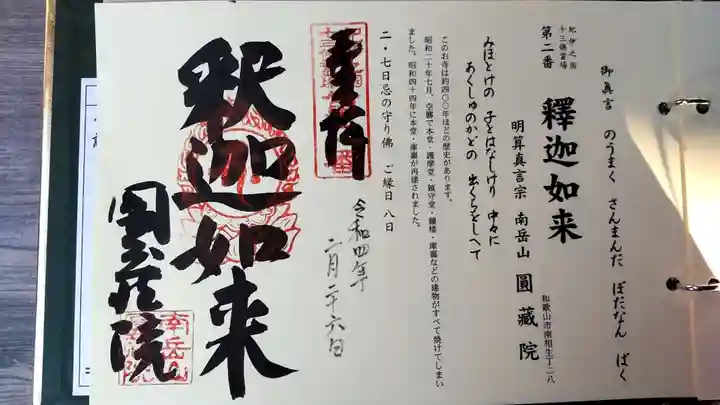 紀伊之国
十三佛霊場
第二番
釋迦如来
御真言 のうまく さんまんだ ぼだなん ばく
明算真言宗 南岳山 圓藏院
和歌山市南相生丁二八
みほとけの 子とはなしけり 中々に
あくしゅのかどの 出くちをしへて
このお寺は約四〇〇年ほどの歴史があります。
昭和二十年七月、空襲で本堂・護摩堂・鎮守堂・鐘楼・庫裏などの建物がすべて焼けてしまい
ました。昭和四十四年に本堂・庫裏が再建されました。
二・七日忌の守り佛 ご縁日 八日
令和四年
二月二十六日
奉拝
釈迦如来
圓蔵院
南岳山